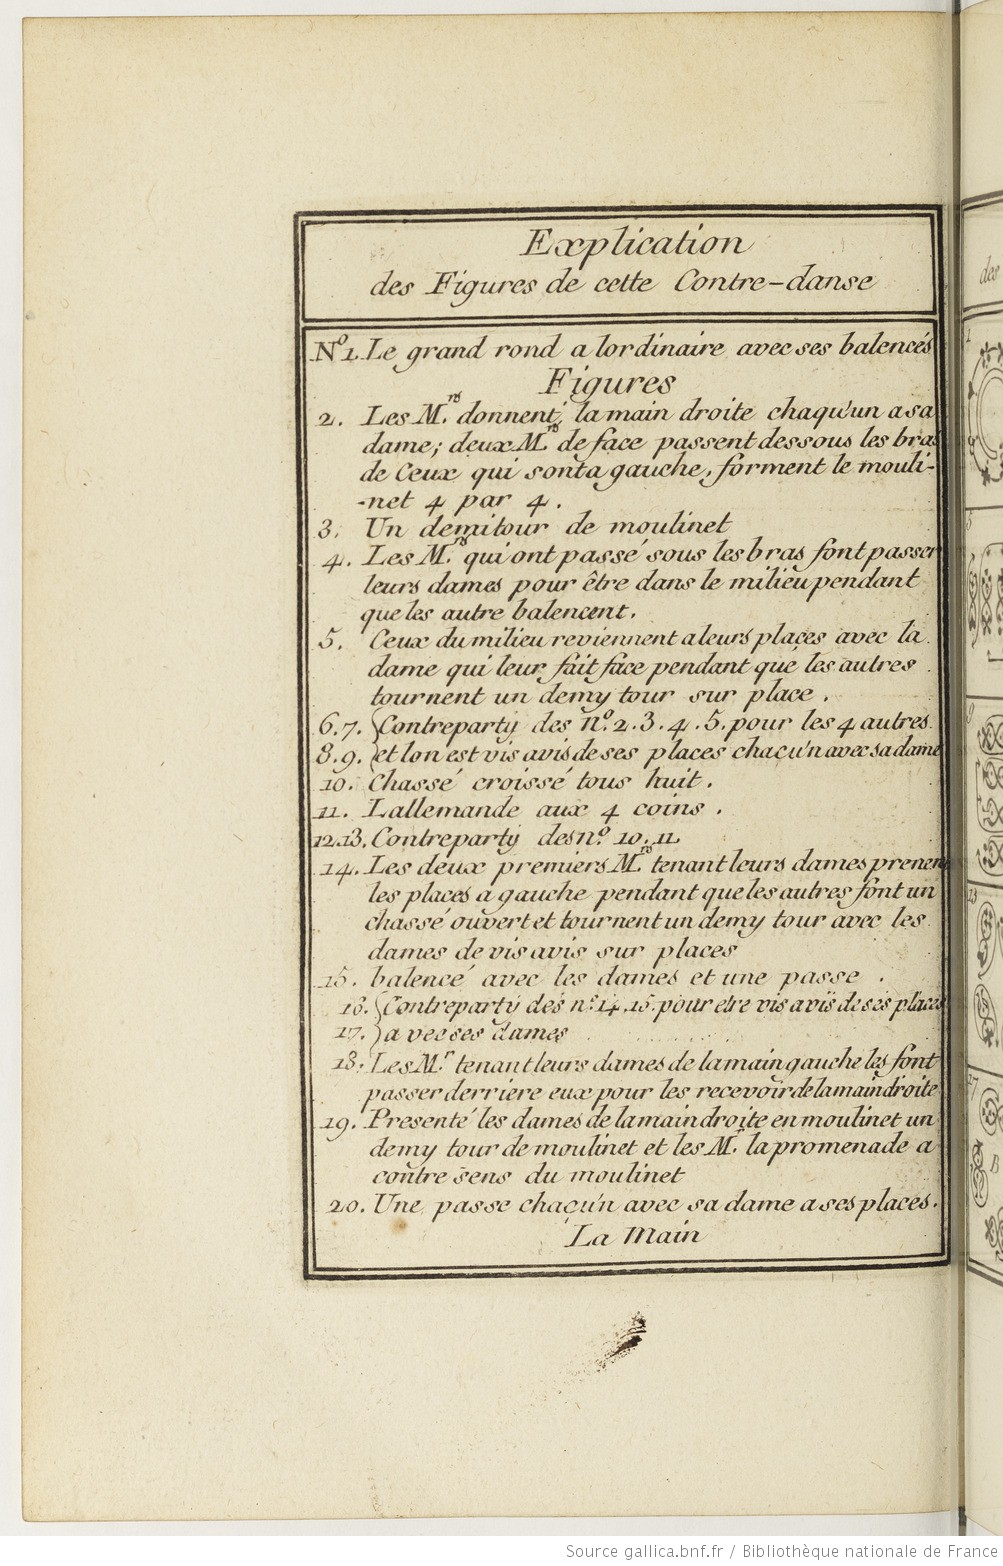 Explication
des Figures de cette Contre-danse
Nº1. Le grand rond a lordinaire avec ses balencés
Figures
2. Les M.rs donnent la main droite chaqu'un a sa
dame; deux M.rs de face passent dessous les bras
de Ceux qui sont a gauche, forment le mouli-
-net 4 par 4.
3. Un demi tour de moulinet
4. Les M.rs qui ont passé sous les bras font passer
leurs dames pour être dans le milieu pendant
que les autre balencent.
5. Ceux du milieu reviennent a leurs places avec la
dame qui leur fait face pendant que les autres
tournent un demy tour sur place.
6.7. Contreparty des nº. 2. 3. 4. 5. pour les 4 autres
8.9. et lon est vis avis de ses places chacu'n avec sa dame
10. Chassé croissé tous huit.
11. Lallemande aux 4 coins.
12.13. Contreparty des nº. 10. 11.
14. Les deux premiers M.rs tenant leurs dames prenent
les places a gauche pendant que les autres font un
chassé ouvert et tournent un demy tour avec les
dames de vis avis sur places
15. balencé avec les dames et une passe.
16. Contreparty des nº. 14. 15. pour etre vis a vis de ses places
17. avec ses dames
18. Les M.r tenant leurs dames de la main gauche les font
passer derriere eux pour les recevoir de la main droite
19. Presenté les dames de la main droite en moulinet un
demy tour de moulinet et les M.rs la promenade a
contre sens du moulinet
20. Une passe chacu'n avec sa dame a ses places.
La Main
des
Source gallica.bnf.fr / Bibliothèque nationale de France